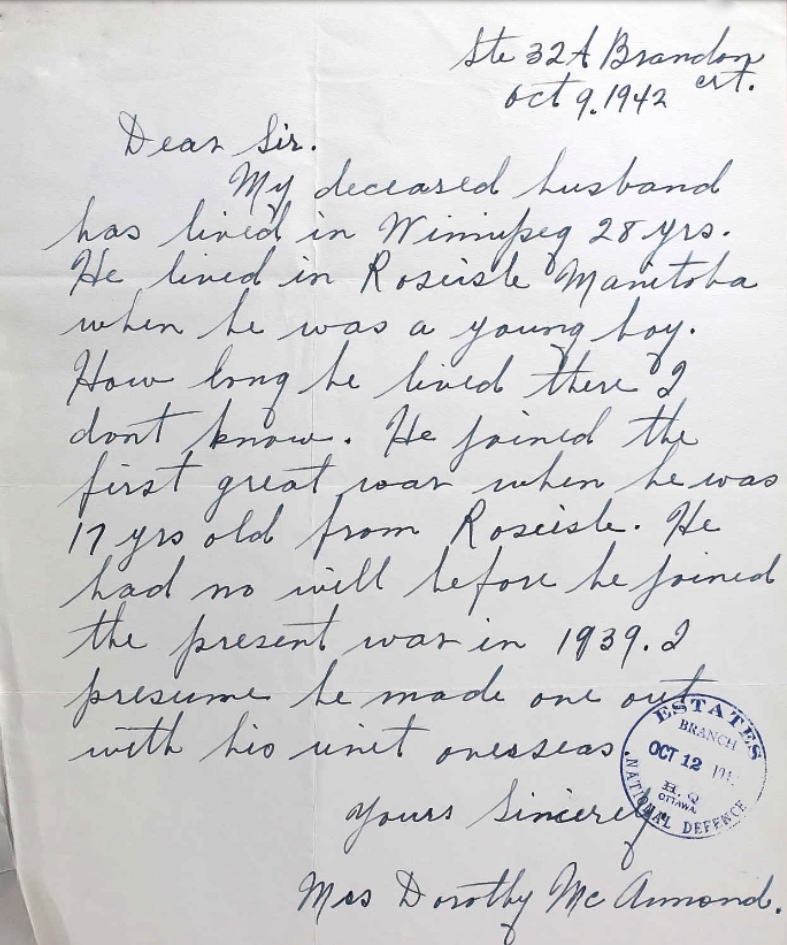 Ste 32A Brandon
crt.
Oct 9.1942
Dear Sir.
My deceased husband
has lived in Winnipeg 28 yrs.
He lived in Roseisle Manitoba
when he was a young boy.
How long he lived there I
dont know. He joined the
first great war when he was
17 yrs old from Roseisle. He
had no will before he joined
the present war in 1939. I
presume he made one out
with his unit overseas
Yours Sincerely
Mrs Dorothy McAmmond.
ESTATES
BRANCH
OCT 12
H.Q
OTTAWA
NATIONAL DEFENCE